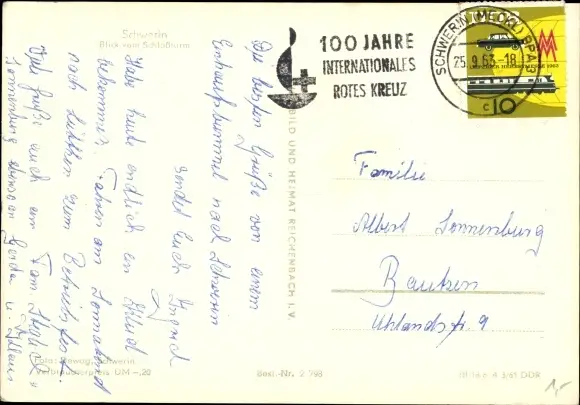 Schwerin
Blick vom Schloßturm
Die besten Grüße von einem
Einkaufsbummel nach Schwerin
sendet Euch Ingrid
Habe heute endlich ein Kleid
bekommen. Fahren am Sonnabend
nach zum Betriebsfest.
Viele Grüße auch an Fam.
Sonnenburg ebenso Gerda u.
100 JAHRE
INTERNATIONALES
ROTES KREUZ
SCHWERIN (MECKL) BPA 3
25.9.63-18
c
MM
10
BILD UND HEIMAT REICHENBACH I. V.
Familie
Albert Sonnenburg
Bautzen
Uhlandstr. 9
Foto: Dewag, Schwerin
Verbraucherpreis DM -,20
Best.-Nr. 2 798
DDR
1,-